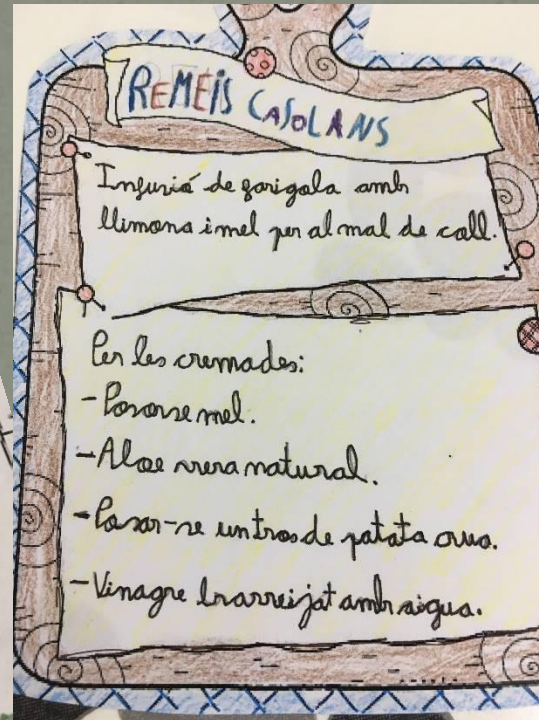 REMEIS CASOLANS
Infusió de farigola amb
llimona i mel per al mal de coll.
Per les cremades:
- Posarse mel.
- Aloe vera natural.
- Posar-se un tros de patata crua.
- Vinagre barreijat amb aigua.